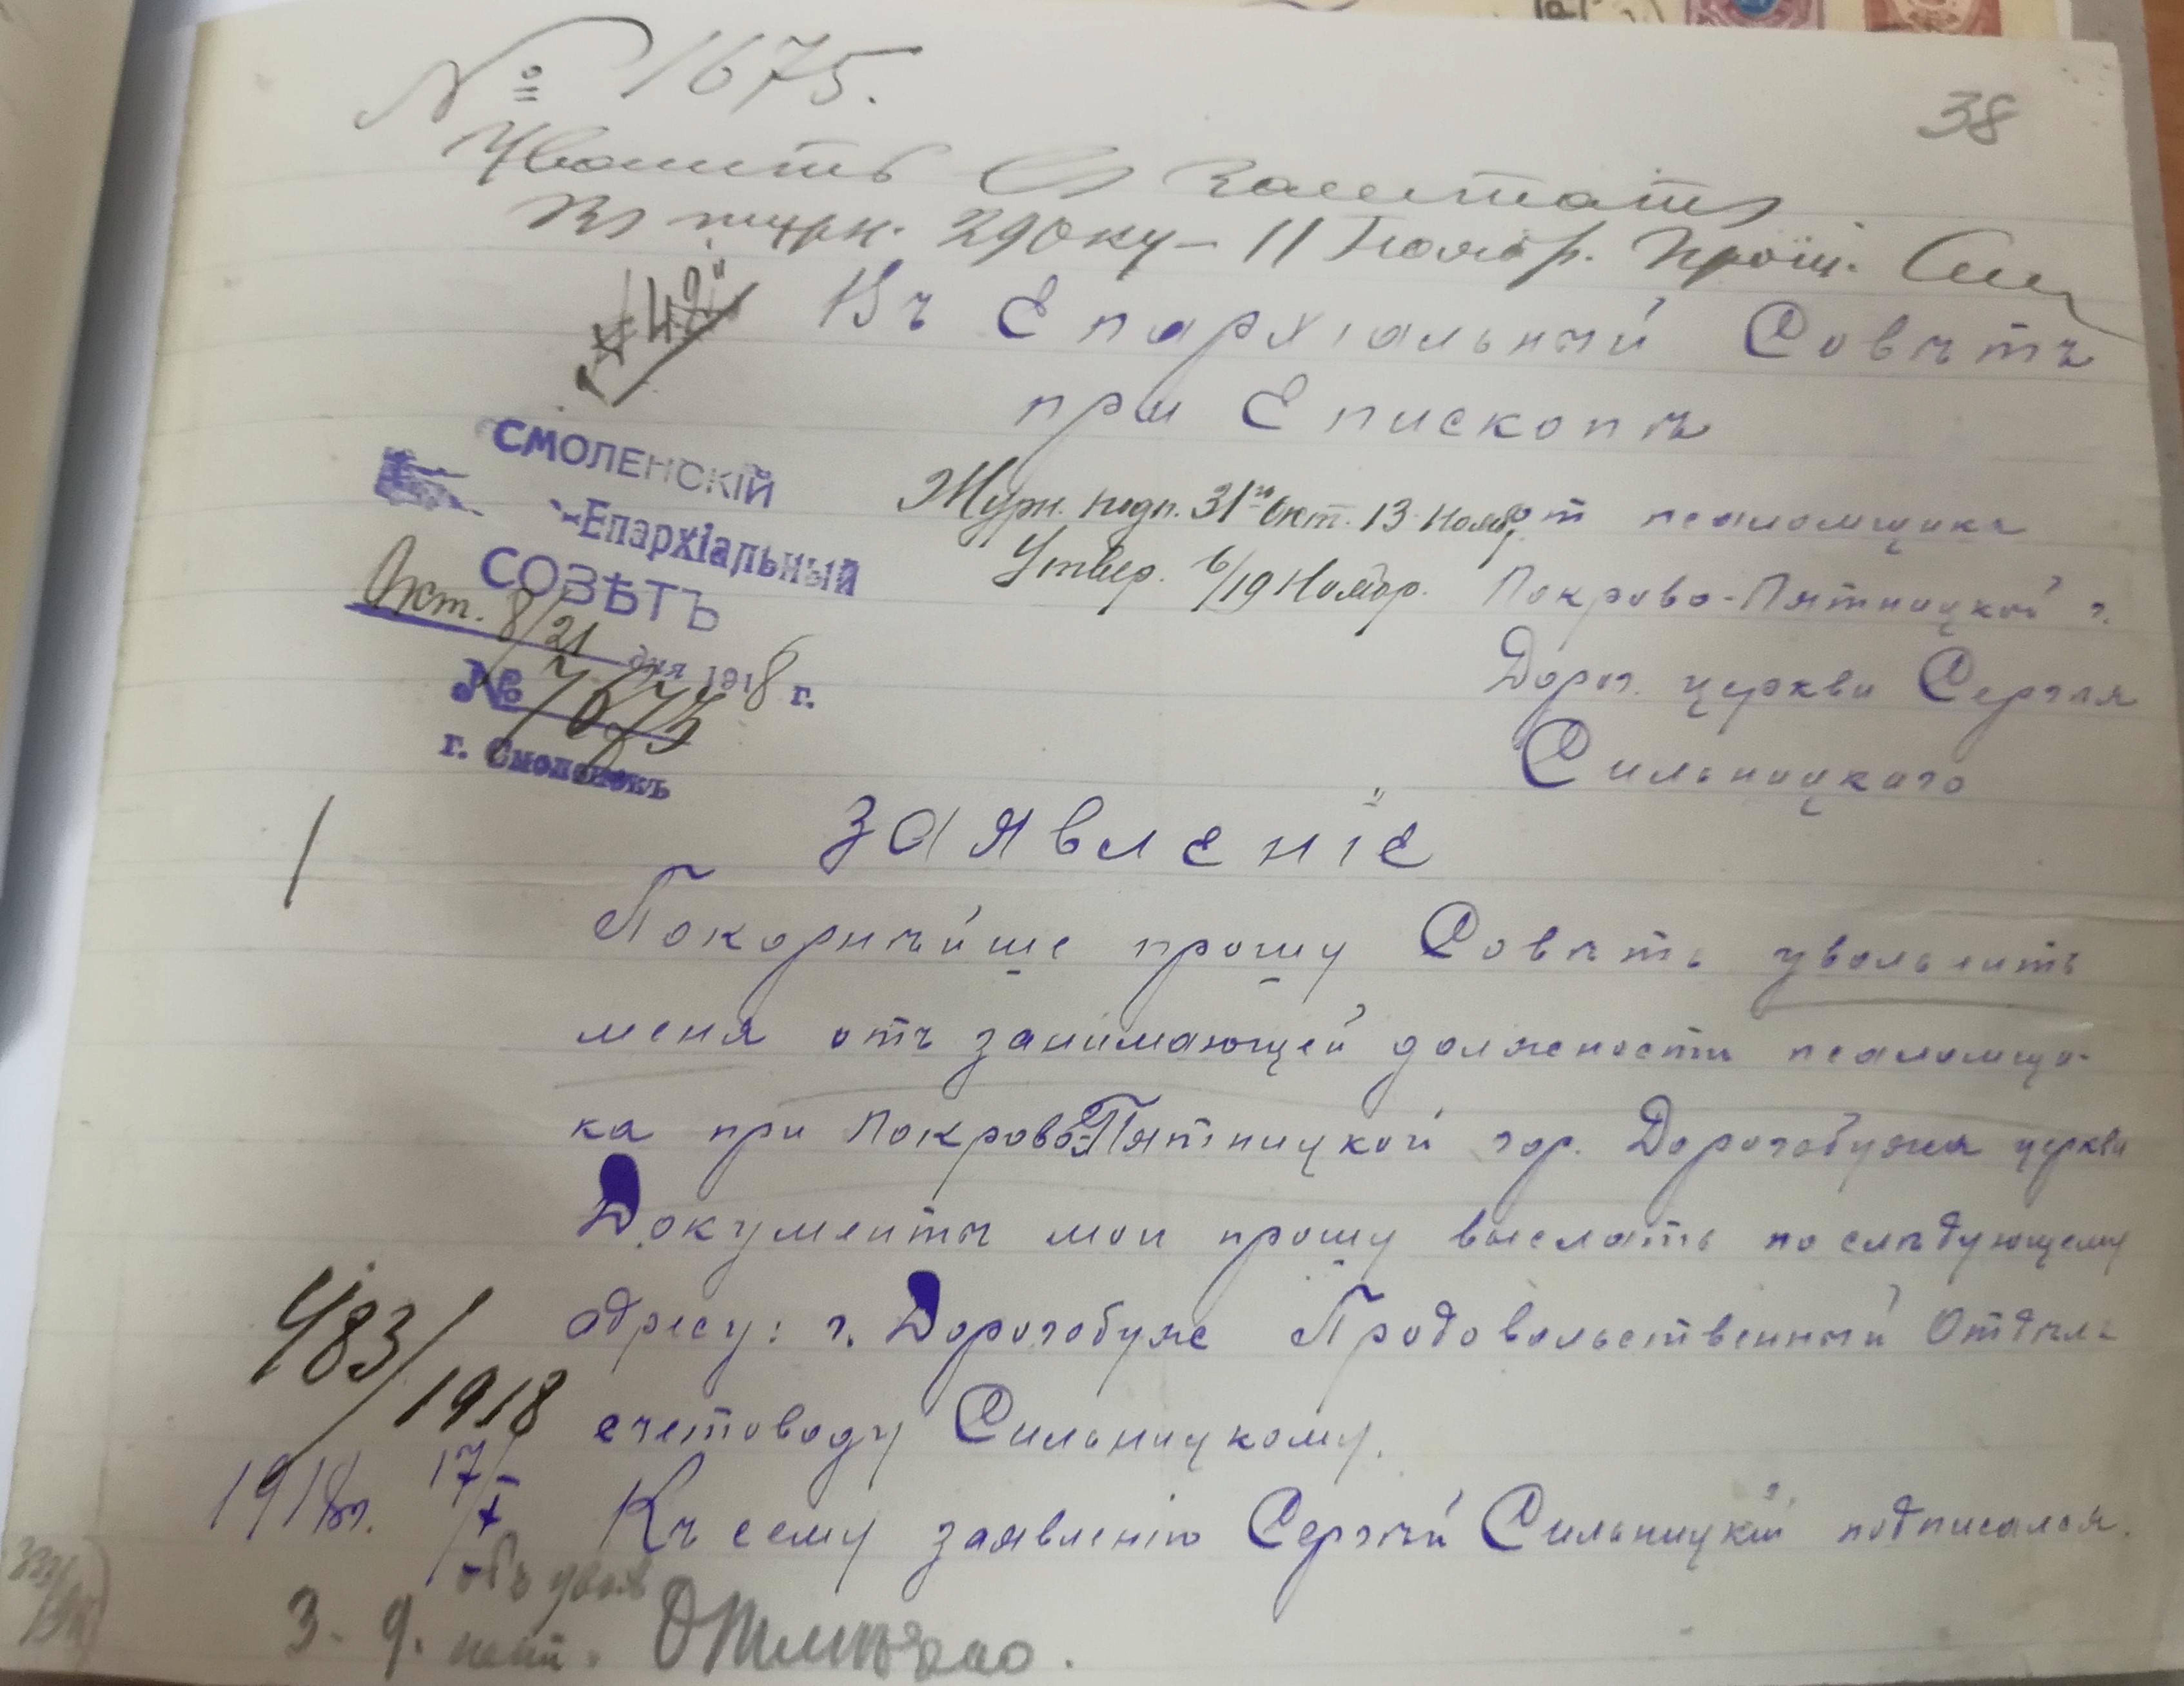 № 1675.
38
Уволить въ заштатъ
11 Ноябр.
№ 42
Въ Епархіальный Совѣтъ
при Епископѣ
СМОЛЕНСКІЙ
Епархіальный
СОВѢТЪ
Окт. 8/21 дня 1918 г.
№ 1675
г. Смоленскъ
Журн. подп. 31 Окт. 13 Нояб.
Утвер. 6/19 Ноябр.
от псаломщика
Покрово-Пятницкой г.
Дорог. церкви Сергѣя
Сильницкаго
Заявленіе
Покорнѣйше прошу Совѣтъ уволить
меня отъ занимающей должности псаломщи-
ка при Покрово-Пятницкой гор. Дорогобужа церкви
Документы мои прошу выслать по слѣдующему
адресу: г. Дорогобуж Продовольственный Отдѣлъ
счетоводу Сильницкому.
483/1918
1918г. 17/X
Къ сему заявленію Сергѣй Сильницкій подписался.
объ увол.
3. 9. Отмѣчено.